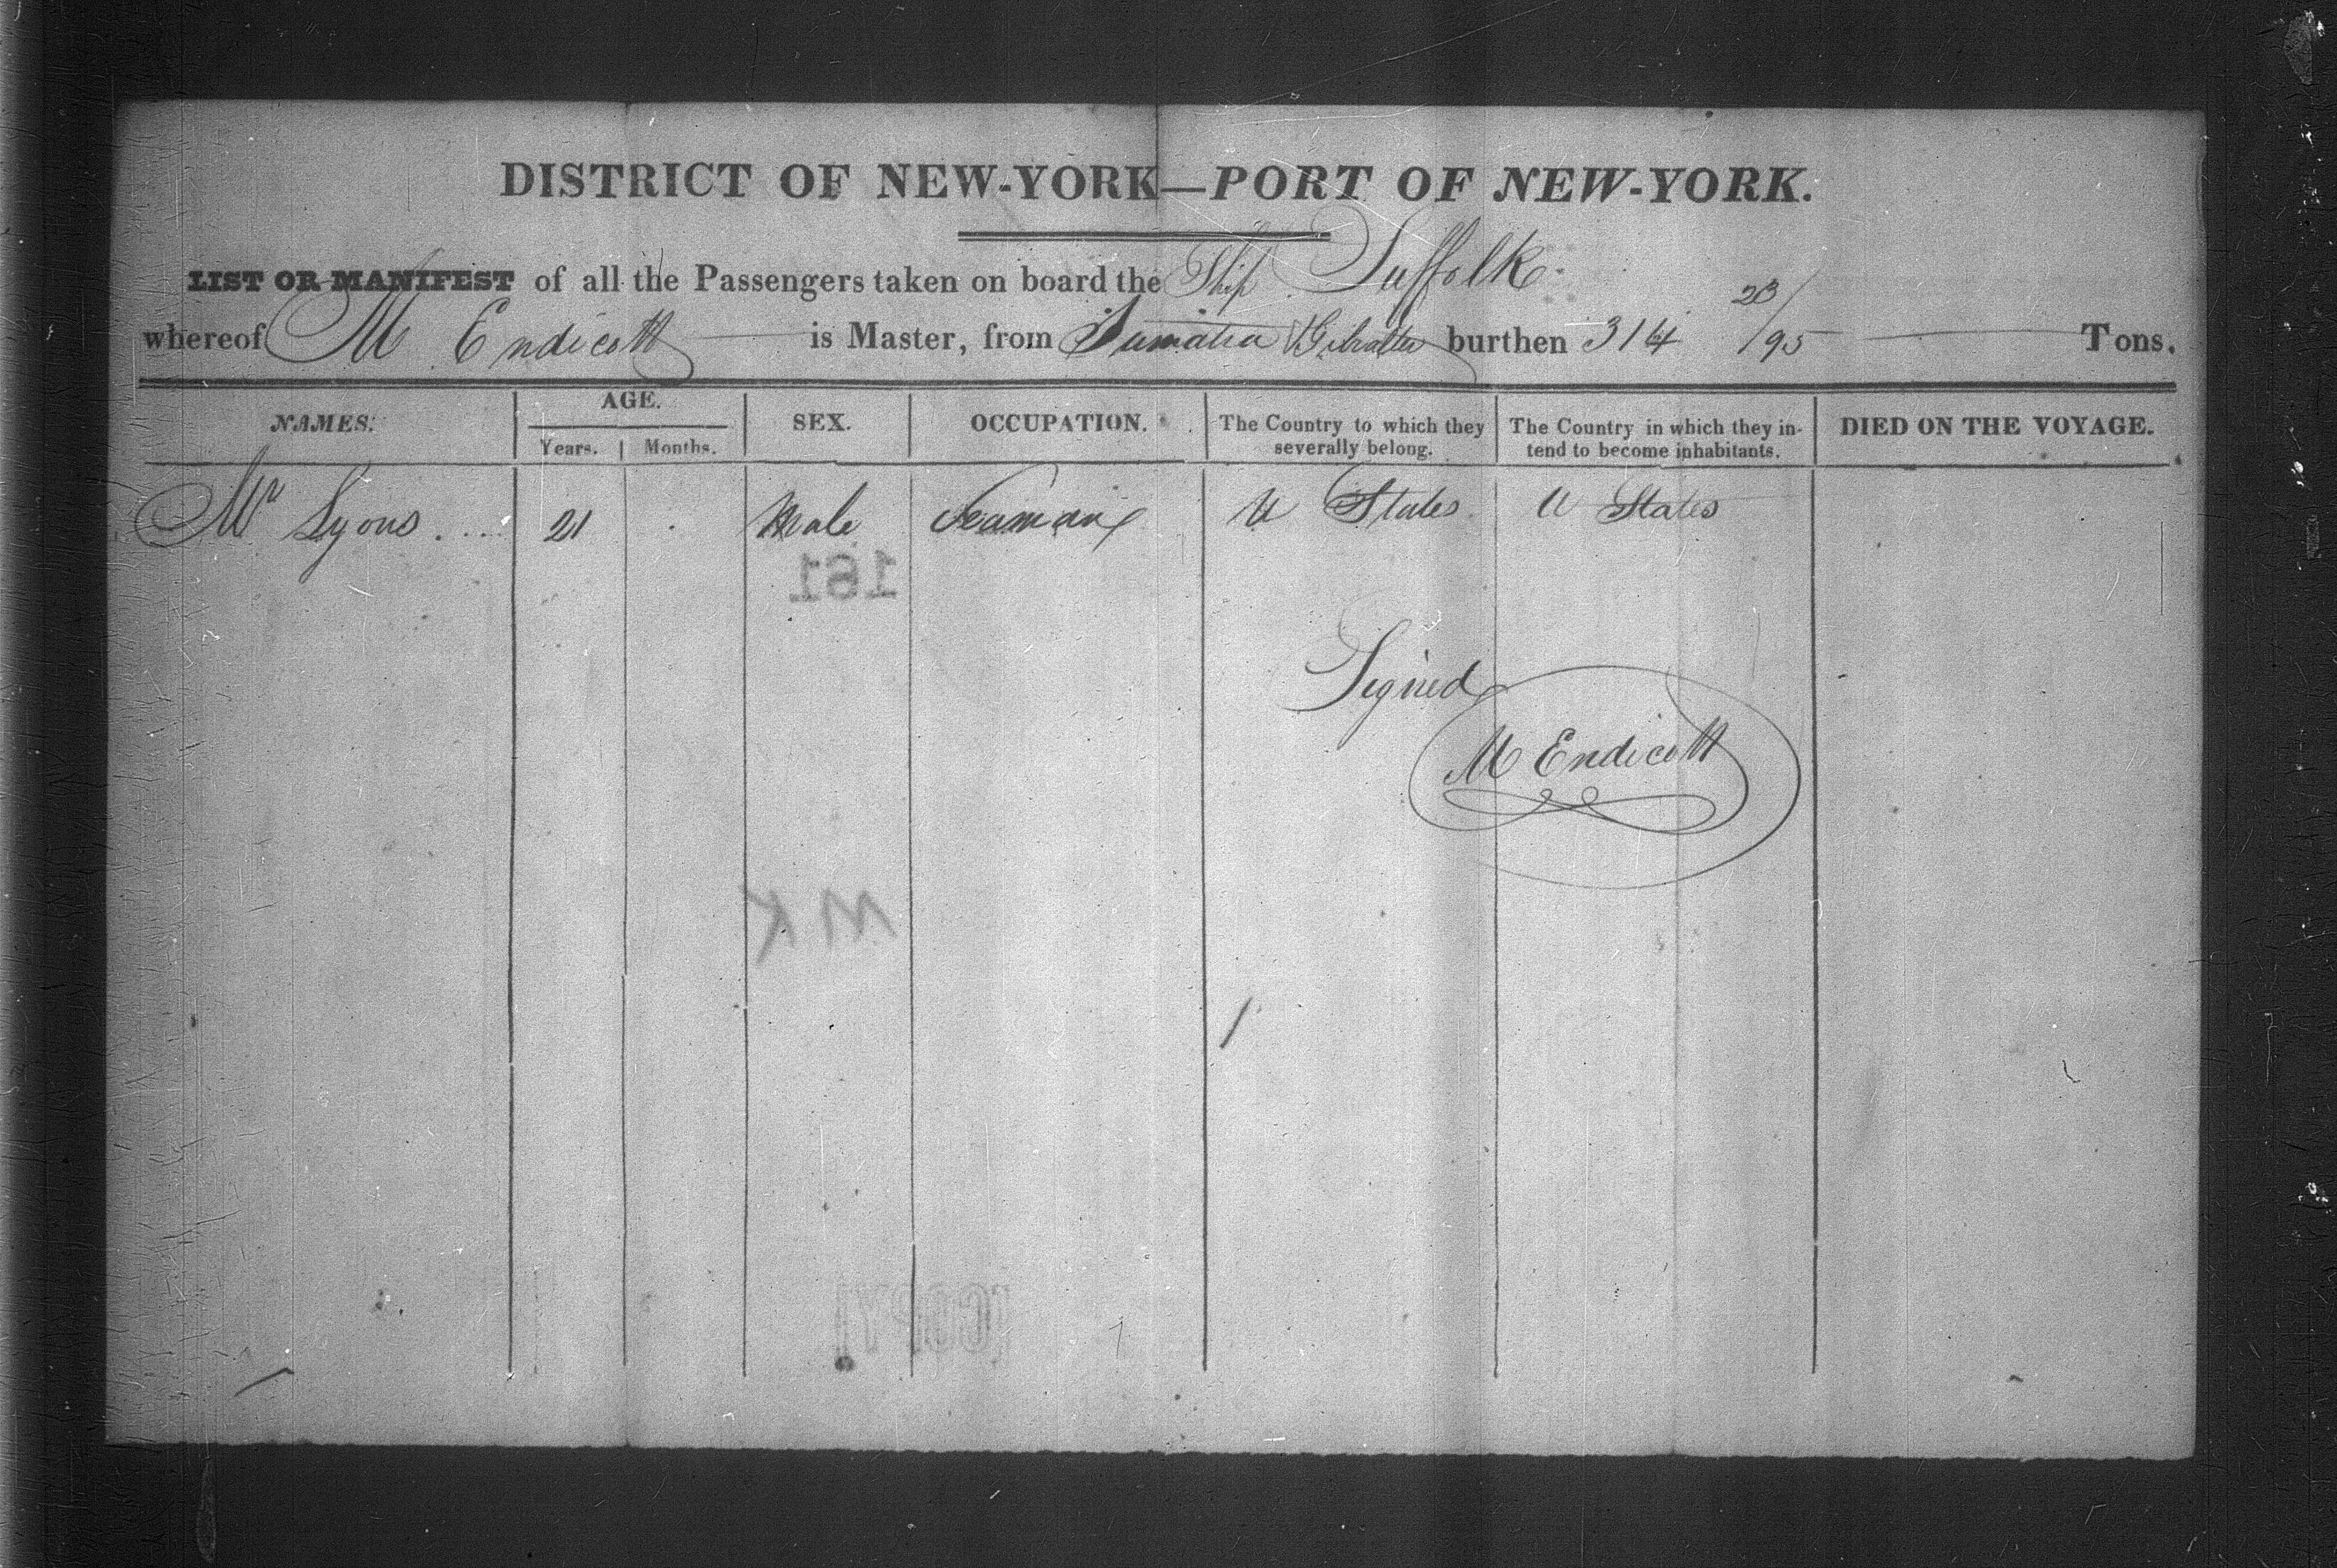 DISTRICT OF NEW-YORK—PORT OF NEW-YORK.
LIST OR MANIFEST of all the Passengers taken on board the Ship Suffolk
whereof M Endicott is Master, from Sumatra & Gibralter burthen 314 23/95 Tons.
NAMES. AGE. Years. Months. SEX. OCCUPATION. The Country to which they severally belong. The Country in which they intend to become inhabitants. DIED ON THE VOYAGE.
Mr Lyons 21 Male Seaman U States U States
161
Signed
M Endicott
M K
(COPY)